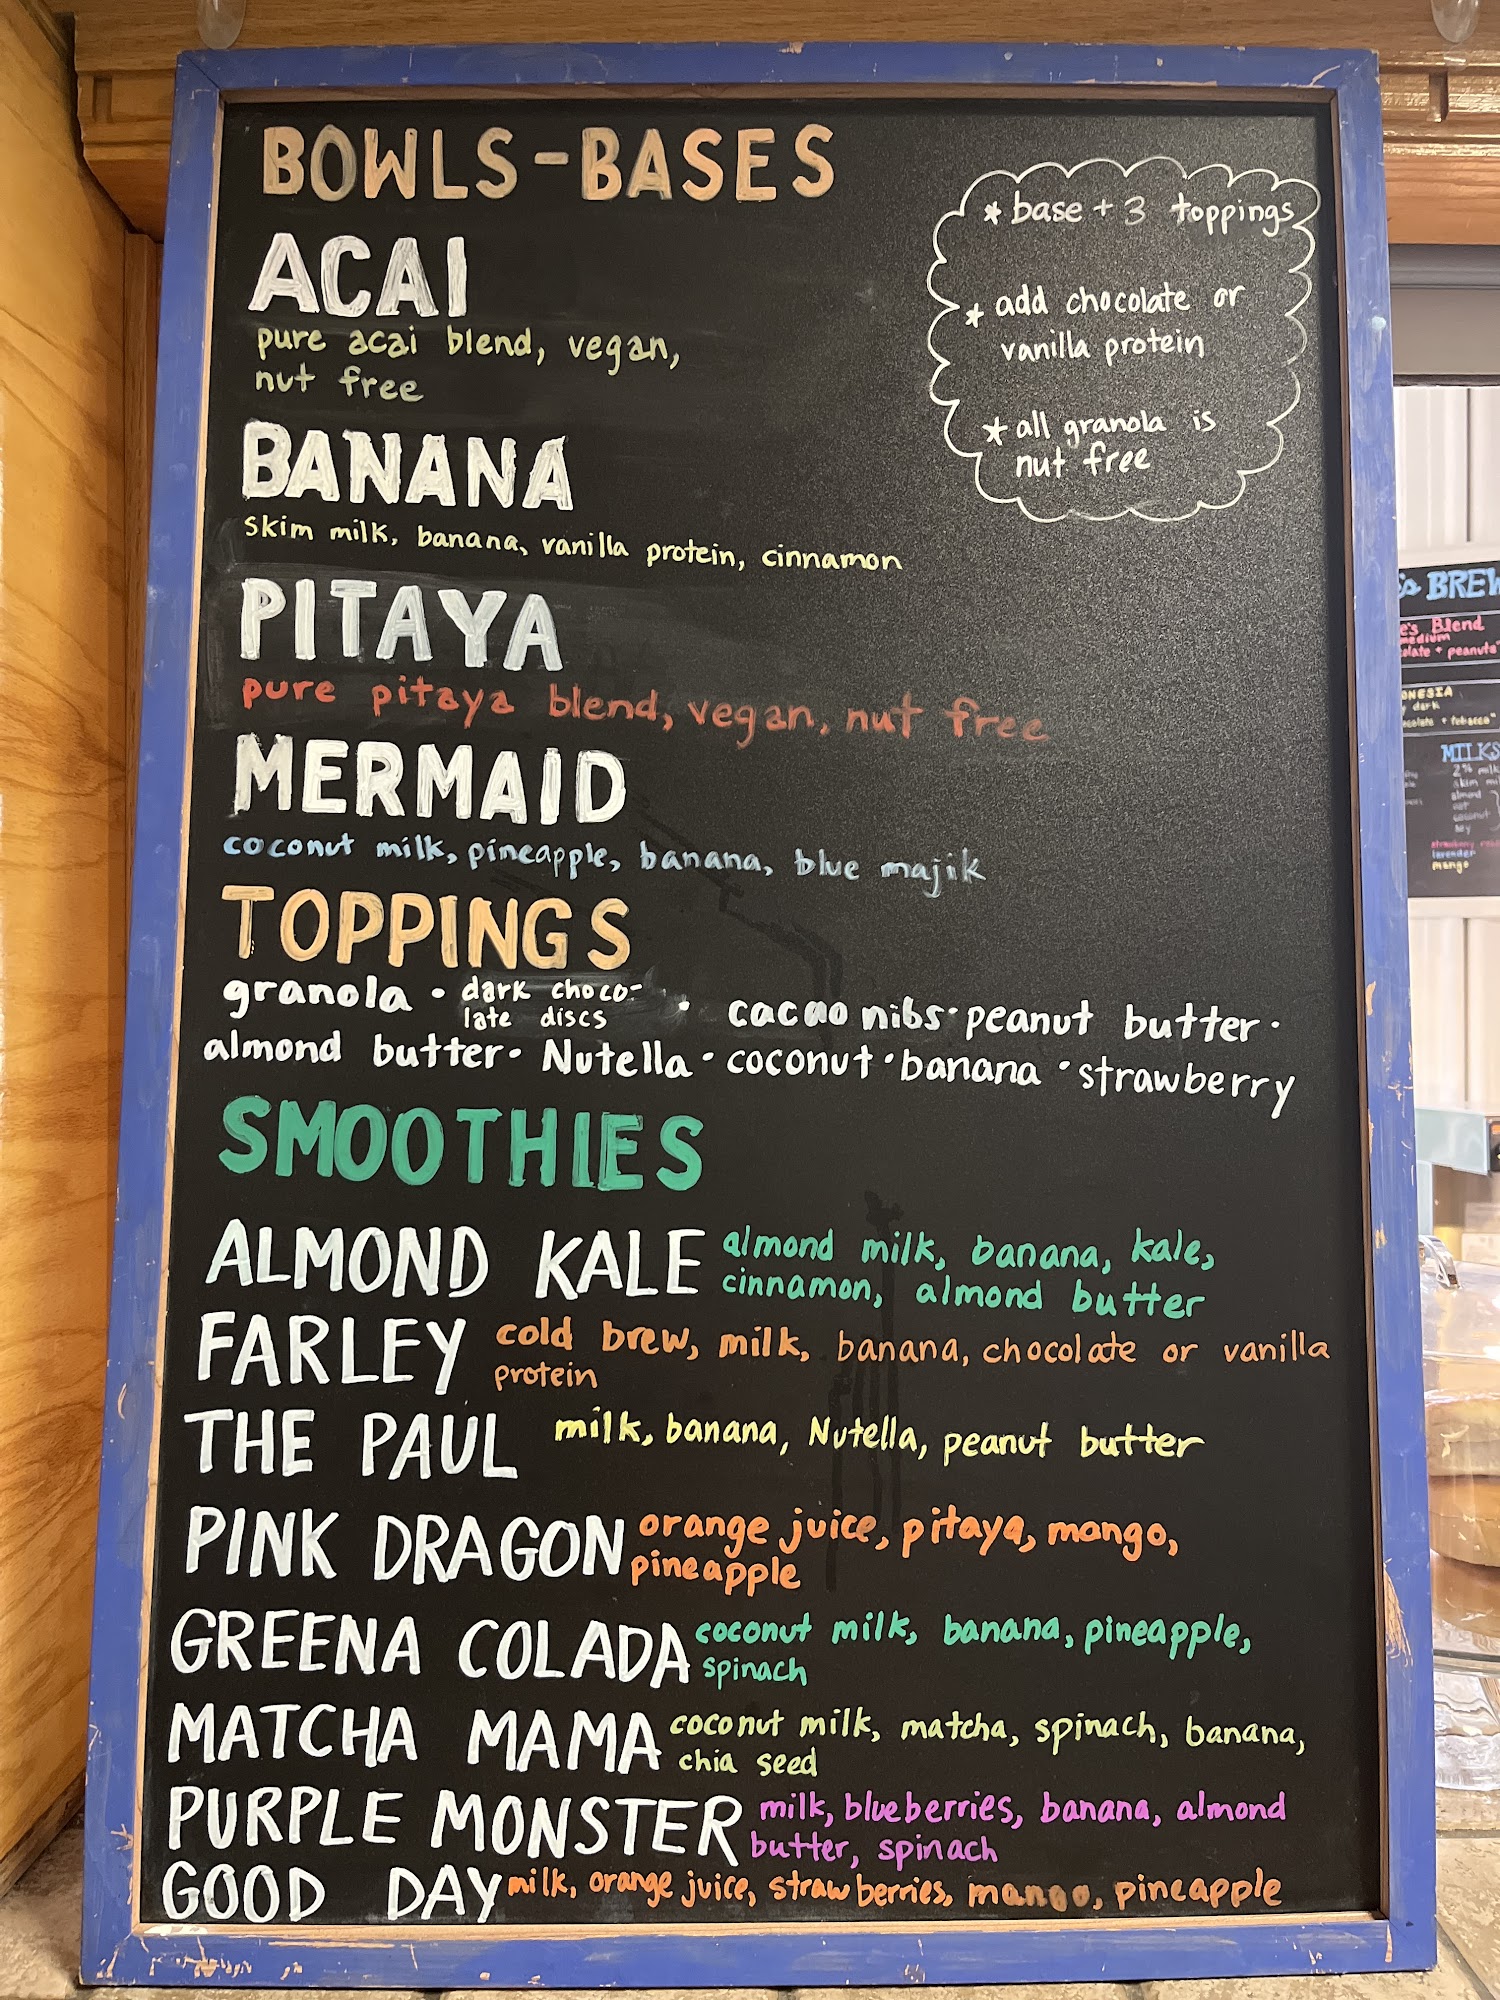 BOWLS-BASES
* base + 3 toppings
* add chocolate or
vanilla protein
* all granola is
nut free
ACAI
pure acai blend, vegan,
nut free
BANANA
skim milk, banana, vanilla protein, cinnamon
PITAYA
pure pitaya blend, vegan, nut free
MERMAID
coconut milk, pineapple, banana, blue majik
TOPPINGS
granola • dark choco-
late discs • cacao nibs • peanut butter •
almond butter • Nutella • coconut • banana • strawberry
SMOOTHIES
ALMOND KALE almond milk, banana, kale,
cinnamon, almond butter
FARLEY cold brew, milk, banana, chocolate or vanilla
protein
THE PAUL milk, banana, Nutella, peanut butter
PINK DRAGON orange juice, pitaya, mango,
pineapple
GREENA COLADA coconut milk, banana, pineapple,
spinach
MATCHA MAMA coconut milk, matcha, spinach, banana,
chia seed
PURPLE MONSTER milk, blueberries, banana, almond
butter, spinach
GOOD DAY milk, orange juice, strawberries, mango, pineapple
BREW
Blend
medium
+ peanuts"
dark
+ tobacco"
MILKS
2% milk
skim
almond
oat
coconut
lavender
mango